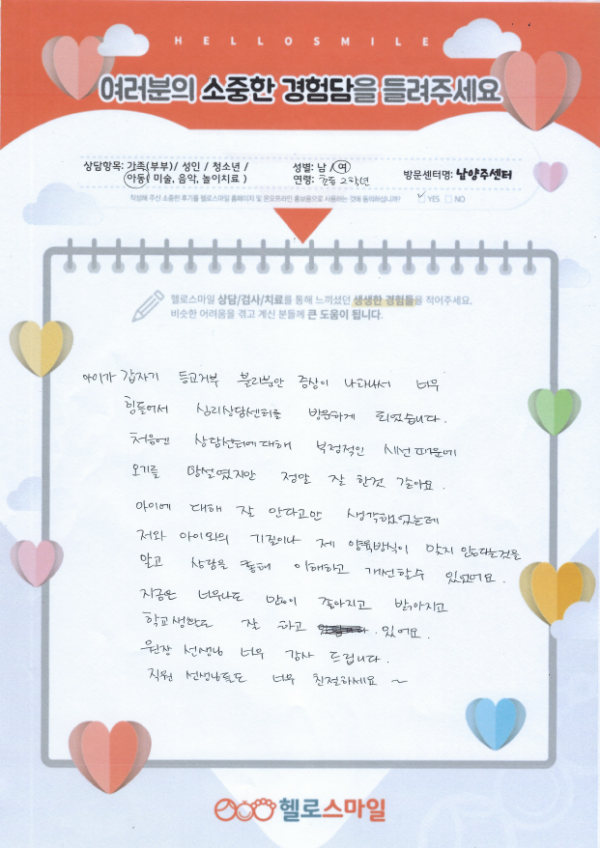 HELLOSMILE
여러분의 소중한 경험담을 들려주세요
상담항목: 가족(부부)/ 성인 / 청소년 /
아동( 미술, 음악, 놀이치료 )
성별: 남 / 여
연령: 초등 2학년
방문센터명: 남양주센터
작성해 주신 소중한 후기를 헬로스마일 홈페이지 및 온오프라인 홍보용으로 사용하는 것에 동의하십니까? YES NO
헬로스마일 상담/검사/치료를 통해 느끼셨던 생생한 경험들을 적어주세요.
비슷한 어려움을 겪고 계신 분들께 큰 도움이 됩니다.
아이가 갑자기 등교거부 분리불안 증상이 나타나서 너무
힘들어서 심리상담센터를 방문하게 되었습니다.
처음엔 상담센터에 대해 부정적인 시선 때문에
오기를 망설였지만 정말 잘 한것 같아요.
아이에 대해 잘 안다고만 생각했었는데
저와 아이와의 기질이나 제 양육방식이 맞지 않는다는것을
알고 상담을 통해 이해하고 개선할수 있었어요.
지금은 너무나도 많이 좋아지고 밝아지고
학교생활도 잘 하고 있어요.
원장 선생님 너무 감사 드립니다.
직원 선생님들도 너무 친절하세요 ~
헬로스마일